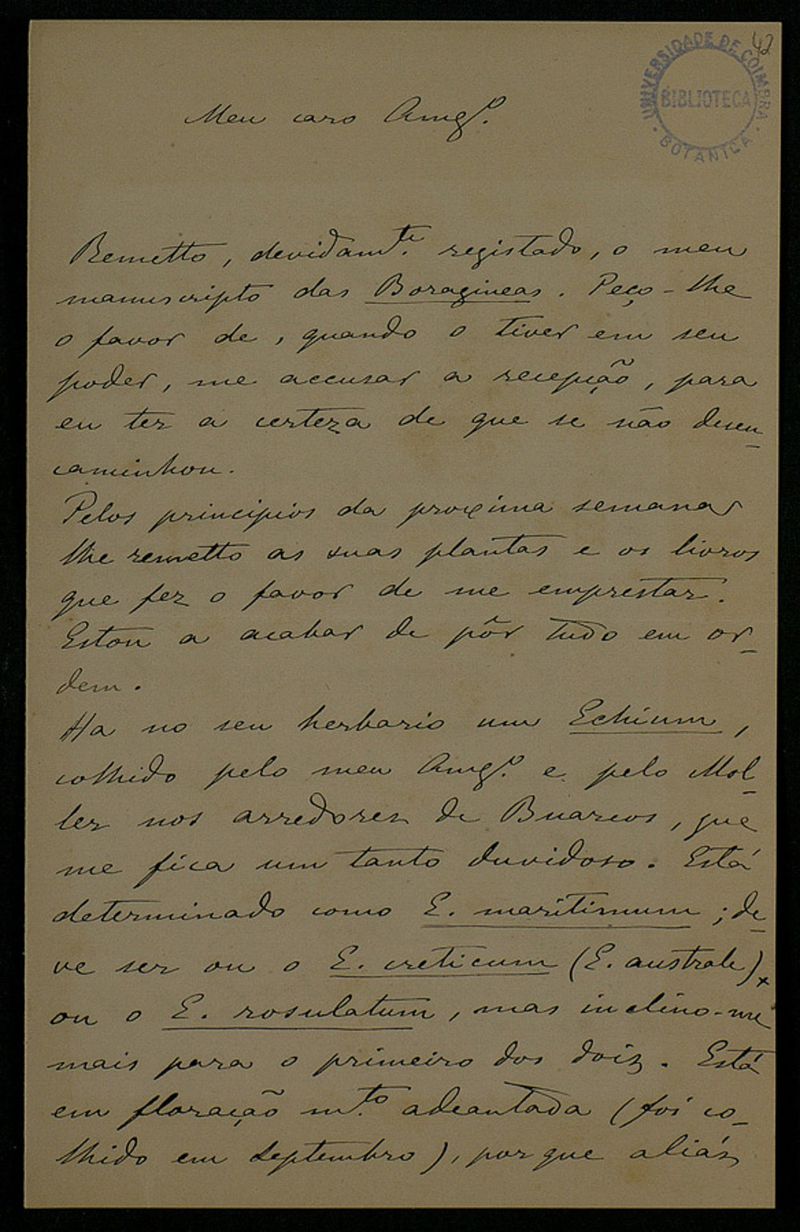 42
UNIVERSIDADE DE COIMBRA
BIBLIOTECA
BOTANICA
Meu caro Amgº.
Remetto, devidamte. registado, o meu
manuscripto das Boragineas. Peço-lhe
o favor de, quando o tiver em seu
poder, me accusar a recepção, para
eu ter a certeza de que se não desen-
caminhou.
Pelos principios da proxima semana
lhe remetto as suas plantas e os livros
que fez o favor de me emprestar.
Estou a acabar de pôr tudo em or-
dem.
Ha no seu herbario um Echium,
colhido pelo meu Amgº. e pelo Mol-
ler nos arredores de Buarcos, que
me fica um tanto duvidoso. Está
determinado como E. maritimum; de-
ve ser ou o E. creticum (E. australe)
ou o E. rosulatum, mas inclino-me
mais para o primeiro dos dois. Está
em floração mto. adeantada (foi co-
lhido em septembro), porque aliás